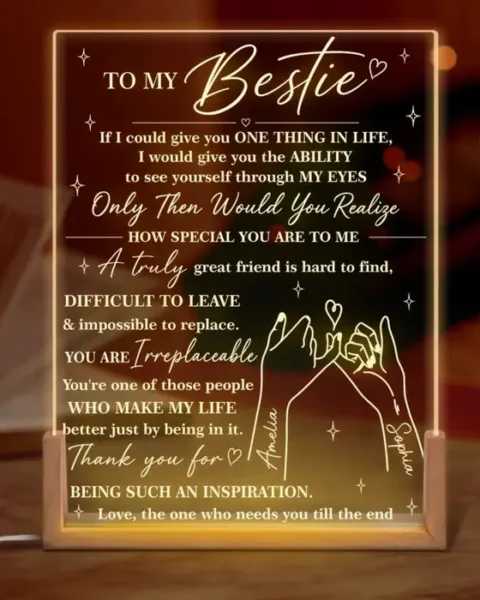 TO MY Bestie
If I could give you ONE THING IN LIFE,
I would give you the ABILITY
to see yourself through MY EYES
Only Then Would You Realize
HOW SPECIAL YOU ARE TO ME
A truly great friend is hard to find,
DIFFICULT TO LEAVE
& impossible to replace.
YOU ARE Irreplaceable
You're one of those people
WHO MAKE MY LIFE
better just by being in it.
Thank you for
BEING SUCH AN INSPIRATION.
Love, the one who needs you till the end
Amelia
Sophia